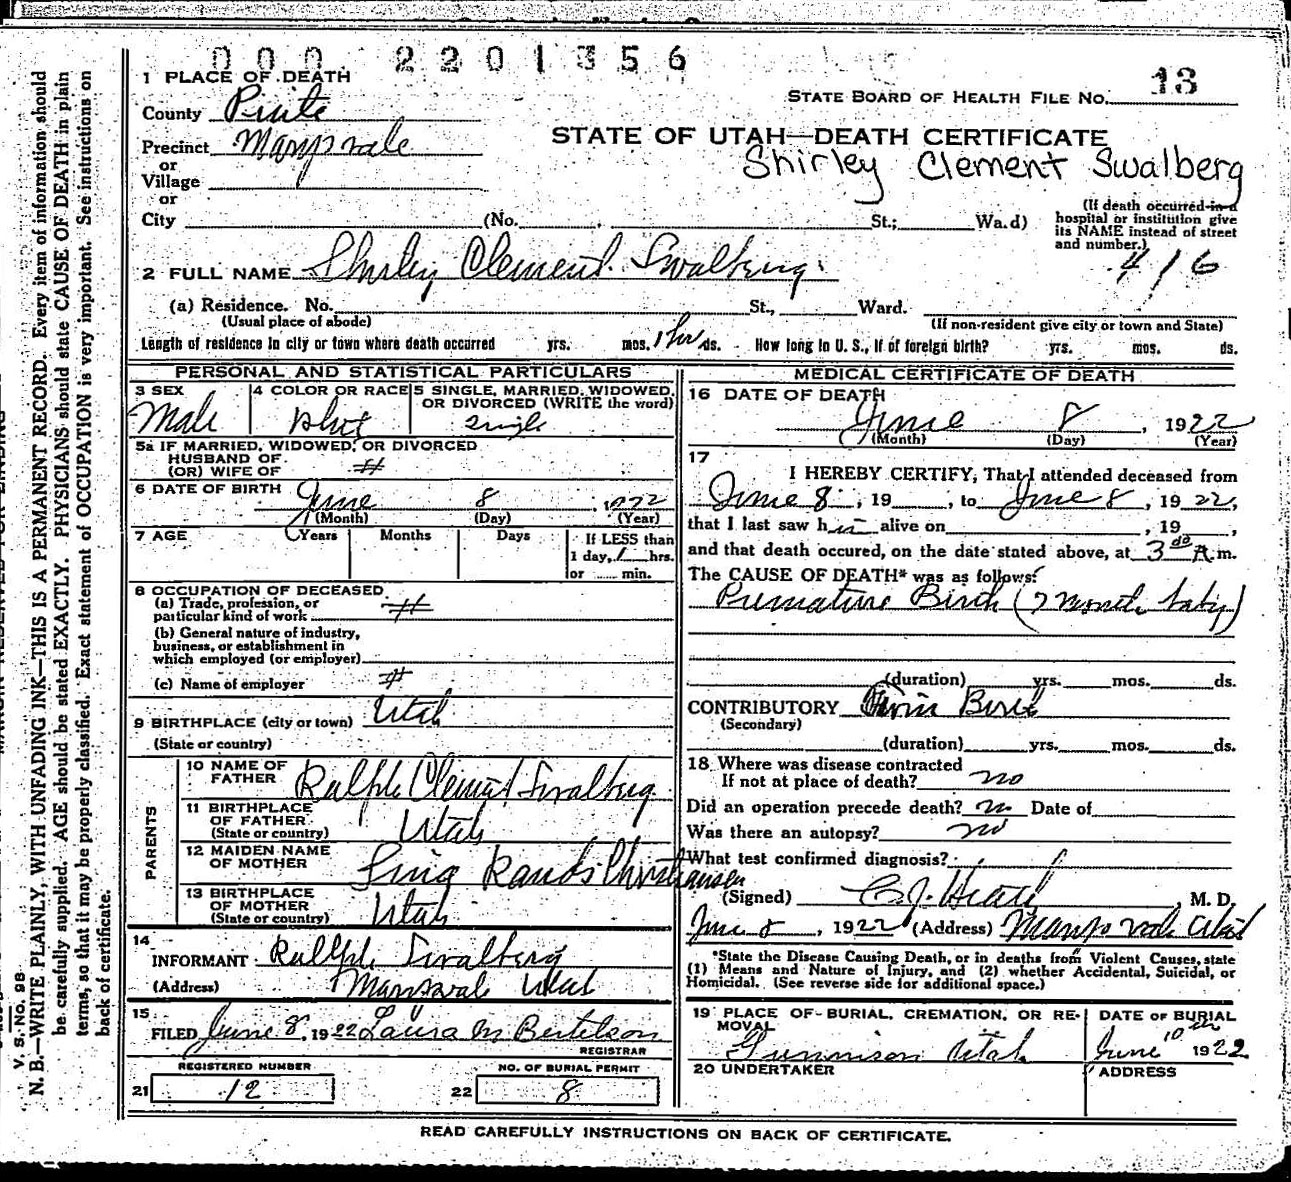 0 0 0 2 2 0 1 3 5 6
1 PLACE OF DEATH
County Piute
Precinct Marysvale
or
Village
or
City (No. St.; Wa.d)
STATE BOARD OF HEALTH FILE No. 13
STATE OF UTAH—DEATH CERTIFICATE
Shirley Clement Swalberg
(If death occurred in a
hospital or institution give
its NAME instead of street
and number.)
416
2 FULL NAME Shirley Clement Swalberg
(a) Residence. No. St., Ward.
(Usual place of abode) (If non-resident give city or town and State)
Length of residence in city or town where death occurred yrs. mos. 1 hr ds. How long in U. S., if of foreign birth? yrs. mos. ds.
PERSONAL AND STATISTICAL PARTICULARS
3 SEX 4 COLOR OR RACE 5 SINGLE, MARRIED, WIDOWED, OR DIVORCED (WRITE the word)
Male single
5a IF MARRIED, WIDOWED, OR DIVORCED
HUSBAND OF
(OR) WIFE OF #
6 DATE OF BIRTH June 8, 1922
(Month) (Day) (Year)
7 AGE Years Months Days If LESS than
1 day, 1 hrs.
or min.
8 OCCUPATION OF DECEASED
(a) Trade, profession, or
particular kind of work #
(b) General nature of industry,
business, or establishment in
which employed (or employer)
(c) Name of employer #
9 BIRTHPLACE (city or town) Utah
(State or country)
PARENTS
10 NAME OF
FATHER Ralph Clement Swalberg
11 BIRTHPLACE
OF FATHER
(State or country) Utah
12 MAIDEN NAME
OF MOTHER Christiansen
13 BIRTHPLACE
OF MOTHER
(State or country) Utah
14
INFORMANT Ralph Swalberg
(Address) Marysvale Utah
15
FILED June 8, 1922 Laura M Bertelson
REGISTRAR
REGISTERED NUMBER NO. OF BURIAL PERMIT
21 12 22 8
MEDICAL CERTIFICATE OF DEATH
16 DATE OF DEATH
June 8, 1922
(Month) (Day) (Year)
17
I HEREBY CERTIFY, That I attended deceased from
June 8, 19 , to June 8, 1922,
that I last saw him alive on , 19 ,
and that death occured, on the date stated above, at 3 A.m.
The CAUSE OF DEATH* was as follows:
Premature Birth (7 month baby)
(duration) yrs. mos. ds.
CONTRIBUTORY Twin Birth
(Secondary)
(duration) yrs. mos. ds.
18 Where was disease contracted
If not at place of death? no
Did an operation precede death? no Date of
Was there an autopsy? no
What test confirmed diagnosis?
(Signed) , M. D.
June 8, 1922 (Address) Marysvale Utah
*State the Disease Causing Death, or in deaths from Violent Causes, state
(1) Means and Nature of Injury, and (2) whether Accidental, Suicidal, or
Homicidal. (See reverse side for additional space.)
19 PLACE OF BURIAL, CREMATION, OR RE-
MOVAL
Gunnison Utah
DATE OF BURIAL
June 10th 1922
20 UNDERTAKER ADDRESS
READ CAREFULLY INSTRUCTIONS ON BACK OF CERTIFICATE.
V. S. No. 98
N. B.—WRITE PLAINLY, WITH UNFADING INK—THIS IS A PERMANENT RECORD. Every item of information should
be carefully supplied. AGE should be stated EXACTLY. PHYSICIANS should state CAUSE OF DEATH in plain
terms, so that it may be properly classified. Exact statement of OCCUPATION is very important. See instructions on
back of certificate.